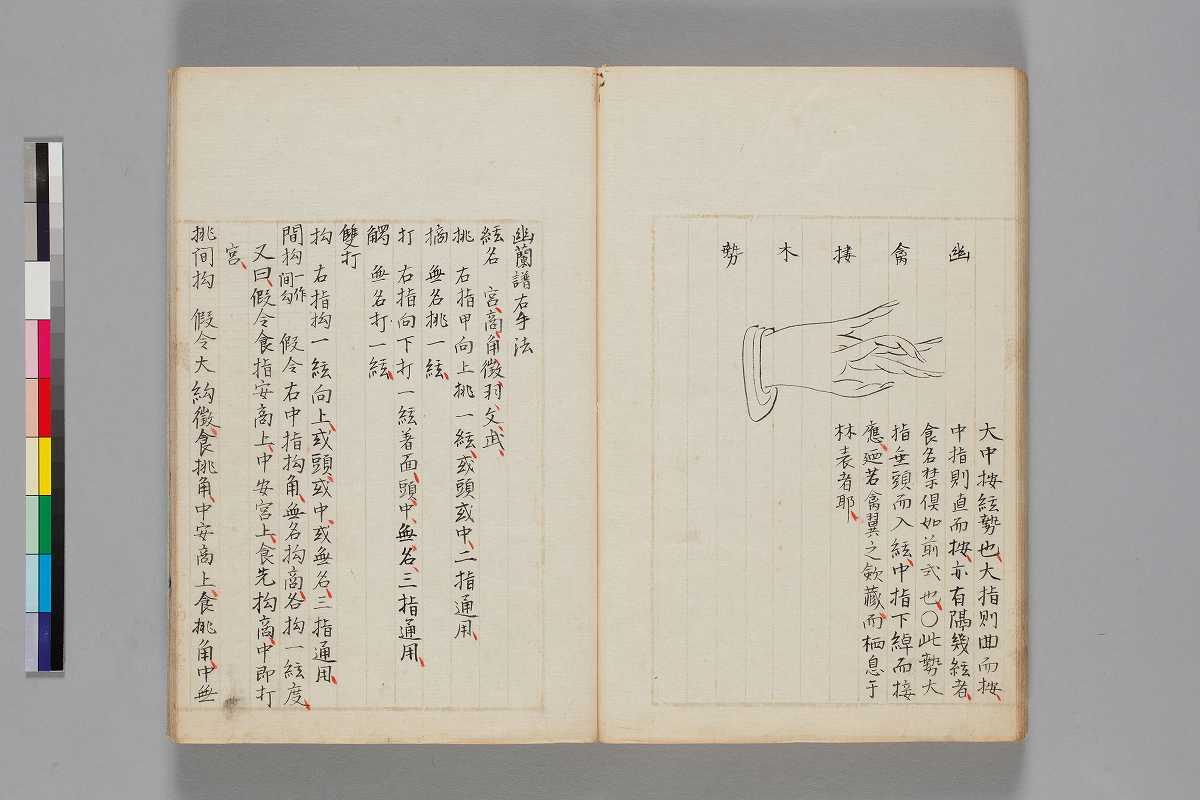 幽禽接木勢
大中按絃勢也大指則曲而按
中指則直而按亦有隔幾絃者
食名禁俱如前式也〇此勢大
指垂頭而入絃中指下綽而接
應廻若禽翼之歛藏而栖息于
林表者耶
幽蘭譜右手法
絃名　宮商角徵羽文武
挑　右指甲向上挑一絃或頭或中二指通用
摘　無名挑一絃
打　右指向下打一絃着面頭中無名三指通用
觸　無名打一絃
雙打
抅　右指抅一絃向上或頭或中或無名三指通用
間抅一作间勾　假令右中指抅角無名抅商各抅一絃度
又曰假令食指安商上中安宮上食先抅商中即打
宮
挑间抅　假令大㧨徵食挑角中安商上食挑角中無